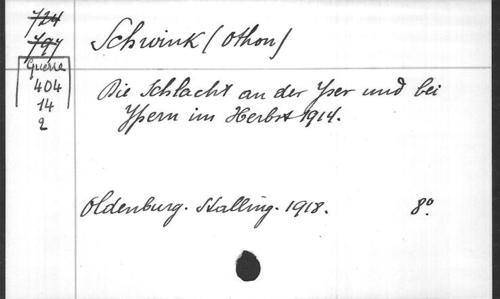 724
797
Guerra
404
14
2
Schwink (Othon)
Die Schlacht an der Yser und bei
Ypern im Herbst 1914.
Oldenburg. Stalling. 1918. 8º.